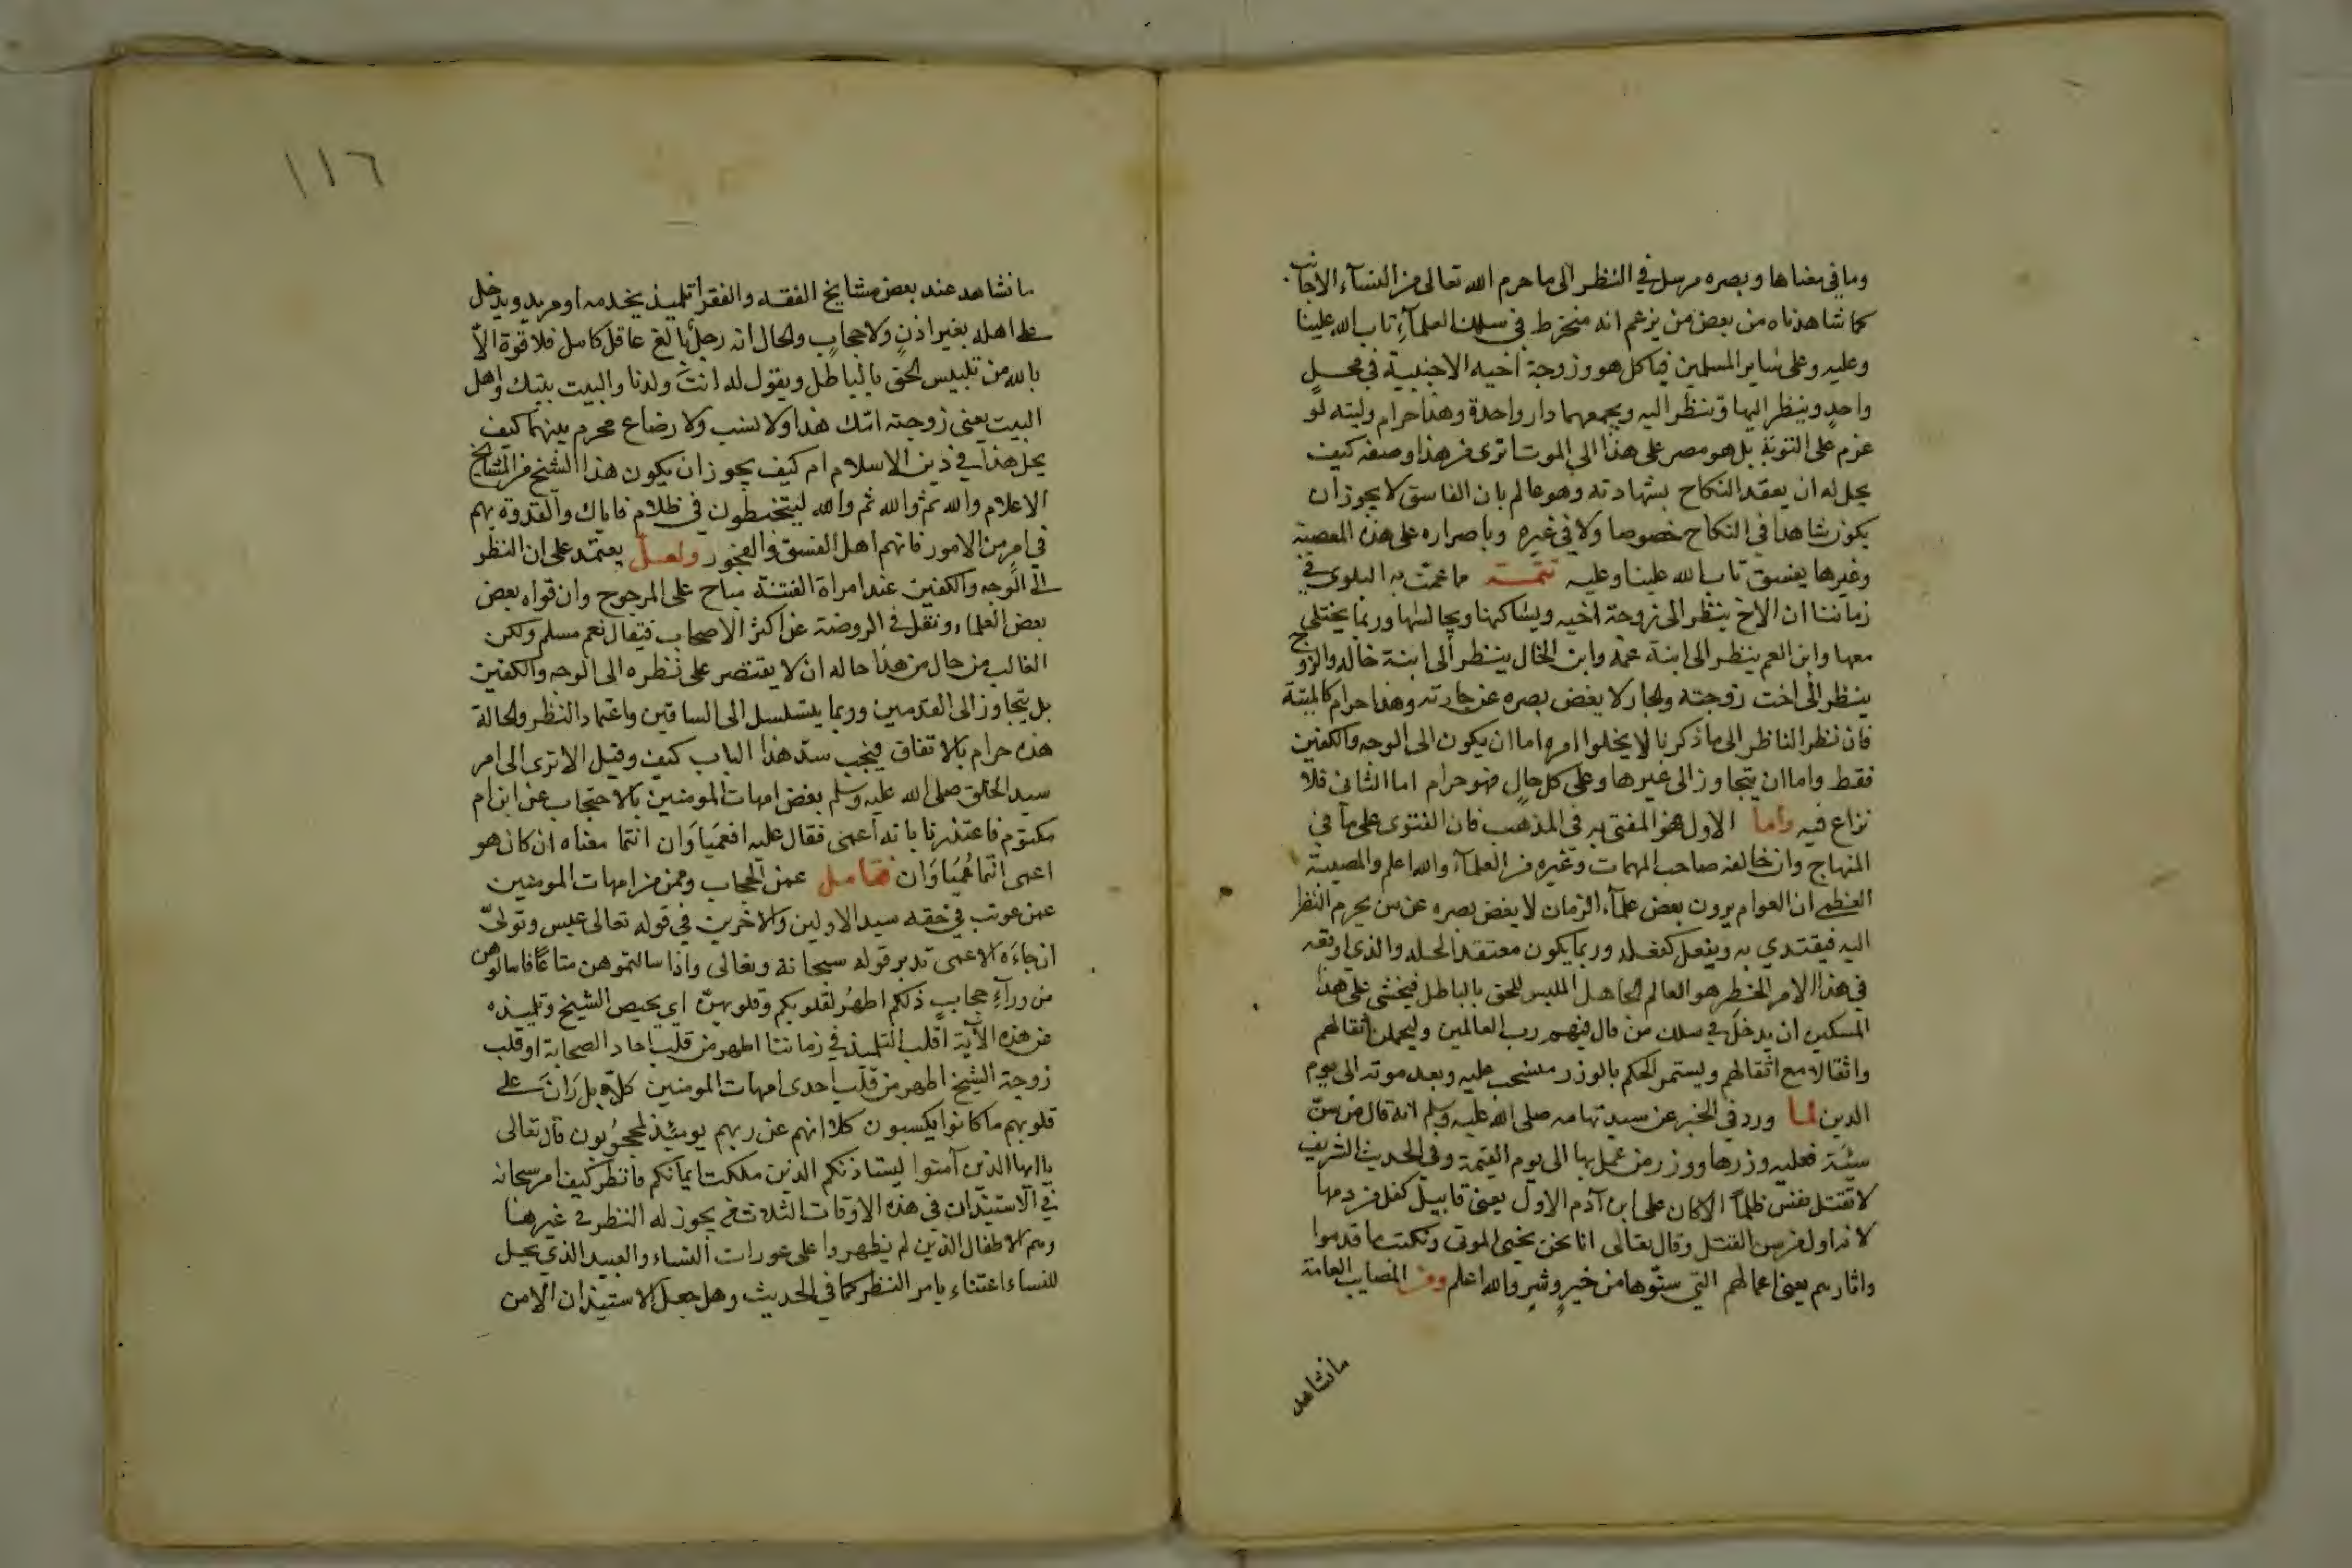 وما في معناها وبصره مرسل في النظر الى ما حرم الله تعالى من النسآء الاجانب
كما شاهدناه من بعض من يزعم انه منخرط في سلك العلمآءِ تاب الله علينا
وعليه وعلى ساير المسلمين فياكل هو وزوجة اخيه الاجنبية في محلٍ
واحدٍ وينظر اليها وتنظر اليه ويجمعهما دار واحدة وهذا حرام وليته لو
عزم على التوبة بل هو مصر على هذا الى الموت اترى من هذا وصفه كيف
يحل له ان يعقد النكاح بشهادته وهو عالم بان الفاسق لا يجوز ان
يكون شاهدا في النكاح خصوصا ولا في غيره وباصراره على هذه المعصية
وغيرها يفسق تاب الله علينا وعليه تتمــة مما عمّت به البلوى في
زماننا ان الاخ ينظر الى زوجة اخيه ويساكنها ويجالسها وربما يختلي
معها وابن العم ينظر الى ابنة عمه وابن الخال ينظر الى ابنة خاله والزوج
ينظر الى اخت زوجته والجار لا يغض بصره عن جارته وهذا حرام كالميتة
فان نظر الناظر الى ما ذكرنا لا يخلوا امره اما ان يكون الى الوجه والكفين
فقط واما ان يتجاوز الى غيرها وعلى كل حالٍ فهو حرام اما الثاني فلا
نزاع فيه واما الاول هو المفتى به في المذهب فان الفتوى على ما في
المنهاج وان خالفه صاحب المهمات وغيره من العلمآء والله اعلم والمصيبة
العظمى ان العوام يرون بعض علمآء الزمان لا يغض بصره عن من يحرم النظر
اليه فيقتدي به ويفعل كفعله وربما يكون معتقد الحله والذي اوقعه
في هذا الامر الخطِر هو العالم الجاهل الملبس للحق بالباطل فيخشى على هذا
المسكين ان يدخل في سلك من قال فيهم رب العالمين وليحملن اثقالهم
واثقالا مع اثقالهم ويستمر الحكم بالوزر منسحب عليه وبعد موته الى يوم
الدين لما ورد في الخبر عن سيد تهامه صلى الله عليه وسلم انه قال من سنّ
سيئة فعليه وزرها ووزر من عمل بها الى يوم القيمة وفي الحديث الشريف
لا تقتل نفس ظلماً الا كان على ابن آدم الاول يعني قابيل كفل من دمها
لانه اول من سن القتل وقال تعالى انا نحن نحيي الموتى ونكتب ما قدموا
واثارهم يعني اعمالهم التي سنّوها من خيرٍ وشرٍ والله اعلم ومن المصايب العامة
ما نشاهد
١١٦
ما نشاهد عند بعض مشايخ الفقه والفقرا تلميذ يخدمه او مريد ويدخل
على اهله بغير اذنٍ ولا حجابٍ والحال انه رجلٌ بالغ عاقل كامل فلا قوة الاّ
بالله من تلبيس الحق بالباطل ويقول له انتَ ولدنا والبيت بيتك واهل
البيت يعني زوجته امك هذا ولا نسب ولا رضاع محرم بينهما كيف
يحل هذا في دين الاسلام ام كيف يجوز ان يكون هذا الشيخ من المشايخ
الاعلام والله ثم والله ثم والله ليتخبطون في ظلام فاياك والقدوة بهم
في امرٍ من الامور فانهم اهل الفسق والفجور ولعــلّ يعتمد على ان النظر
الى الوجه والكفين عند امراة الفتنة مباح على المرجوح وان قواه بعض
بعض العلماء ونقل في الروضة عن اكثر الاصحاب فيقال نعم مسلم ولكن
الغالب من حال من هذا حاله ان لا يقتصر على نظره الى الوجه والكفين
بل يتجاوز الى القدمين وربما يتسلسل الى الساقين واعتماد النظر والحالة
هذه حرام بالاتفاق فيجب سدّ هذا الباب كيف وقيل الا ترى الى امر
سيد الخلق صلى الله عليه وسلم بعض امهات المومنين بالاحتجاب عن ابن ام
مكتوم فاعتذرنا بانه اعمى فقال عليه افعَميَاوَان انتما معناه ان كان هو
اعمى انتما عُميَاوَان فتامــل عمن الحجاب وممن من امهات المومنين
عمن عوتب في حقه سيد الاولين والاخرين في قوله تعالى عبس وتولىّ
ان جاءَه الاعمى تدبر قوله سبحانة وتعالى واذا سالتموهن متاعًا فاسالوهن
من ورآءِ حجابٍ ذلكم اطهرُ لقلوبكم وقلوبهنّ اي يحيص الشيخ وتلميذه
من هذه الآية اقلب التلميذ في زماننا اطهر من قلب احاد الصحابة او قلب
زوجة الشيخ اطهر من قلب احدى امهات المومنين كلا بل رَانَ على
قلوبهم ما كانوا يكسبون كلا انهم عن ربهم يومئذ لمحجوُبون قال تعالى
يا ايها الذين آمنوا ليستاذنكم الذين ملكت ايمانكم فانظر كيف امر سبحانه
في الاستيذان في هذه الاوقات الثلاث من يجوز له النظر في غيرها
وهم الاطفال الذين لم يظهروا على عورات النساء والعبيد الذي يحل
للنساء اعتناء بامر النظر كما في الحديث وهل جعل الاستيذان الا من